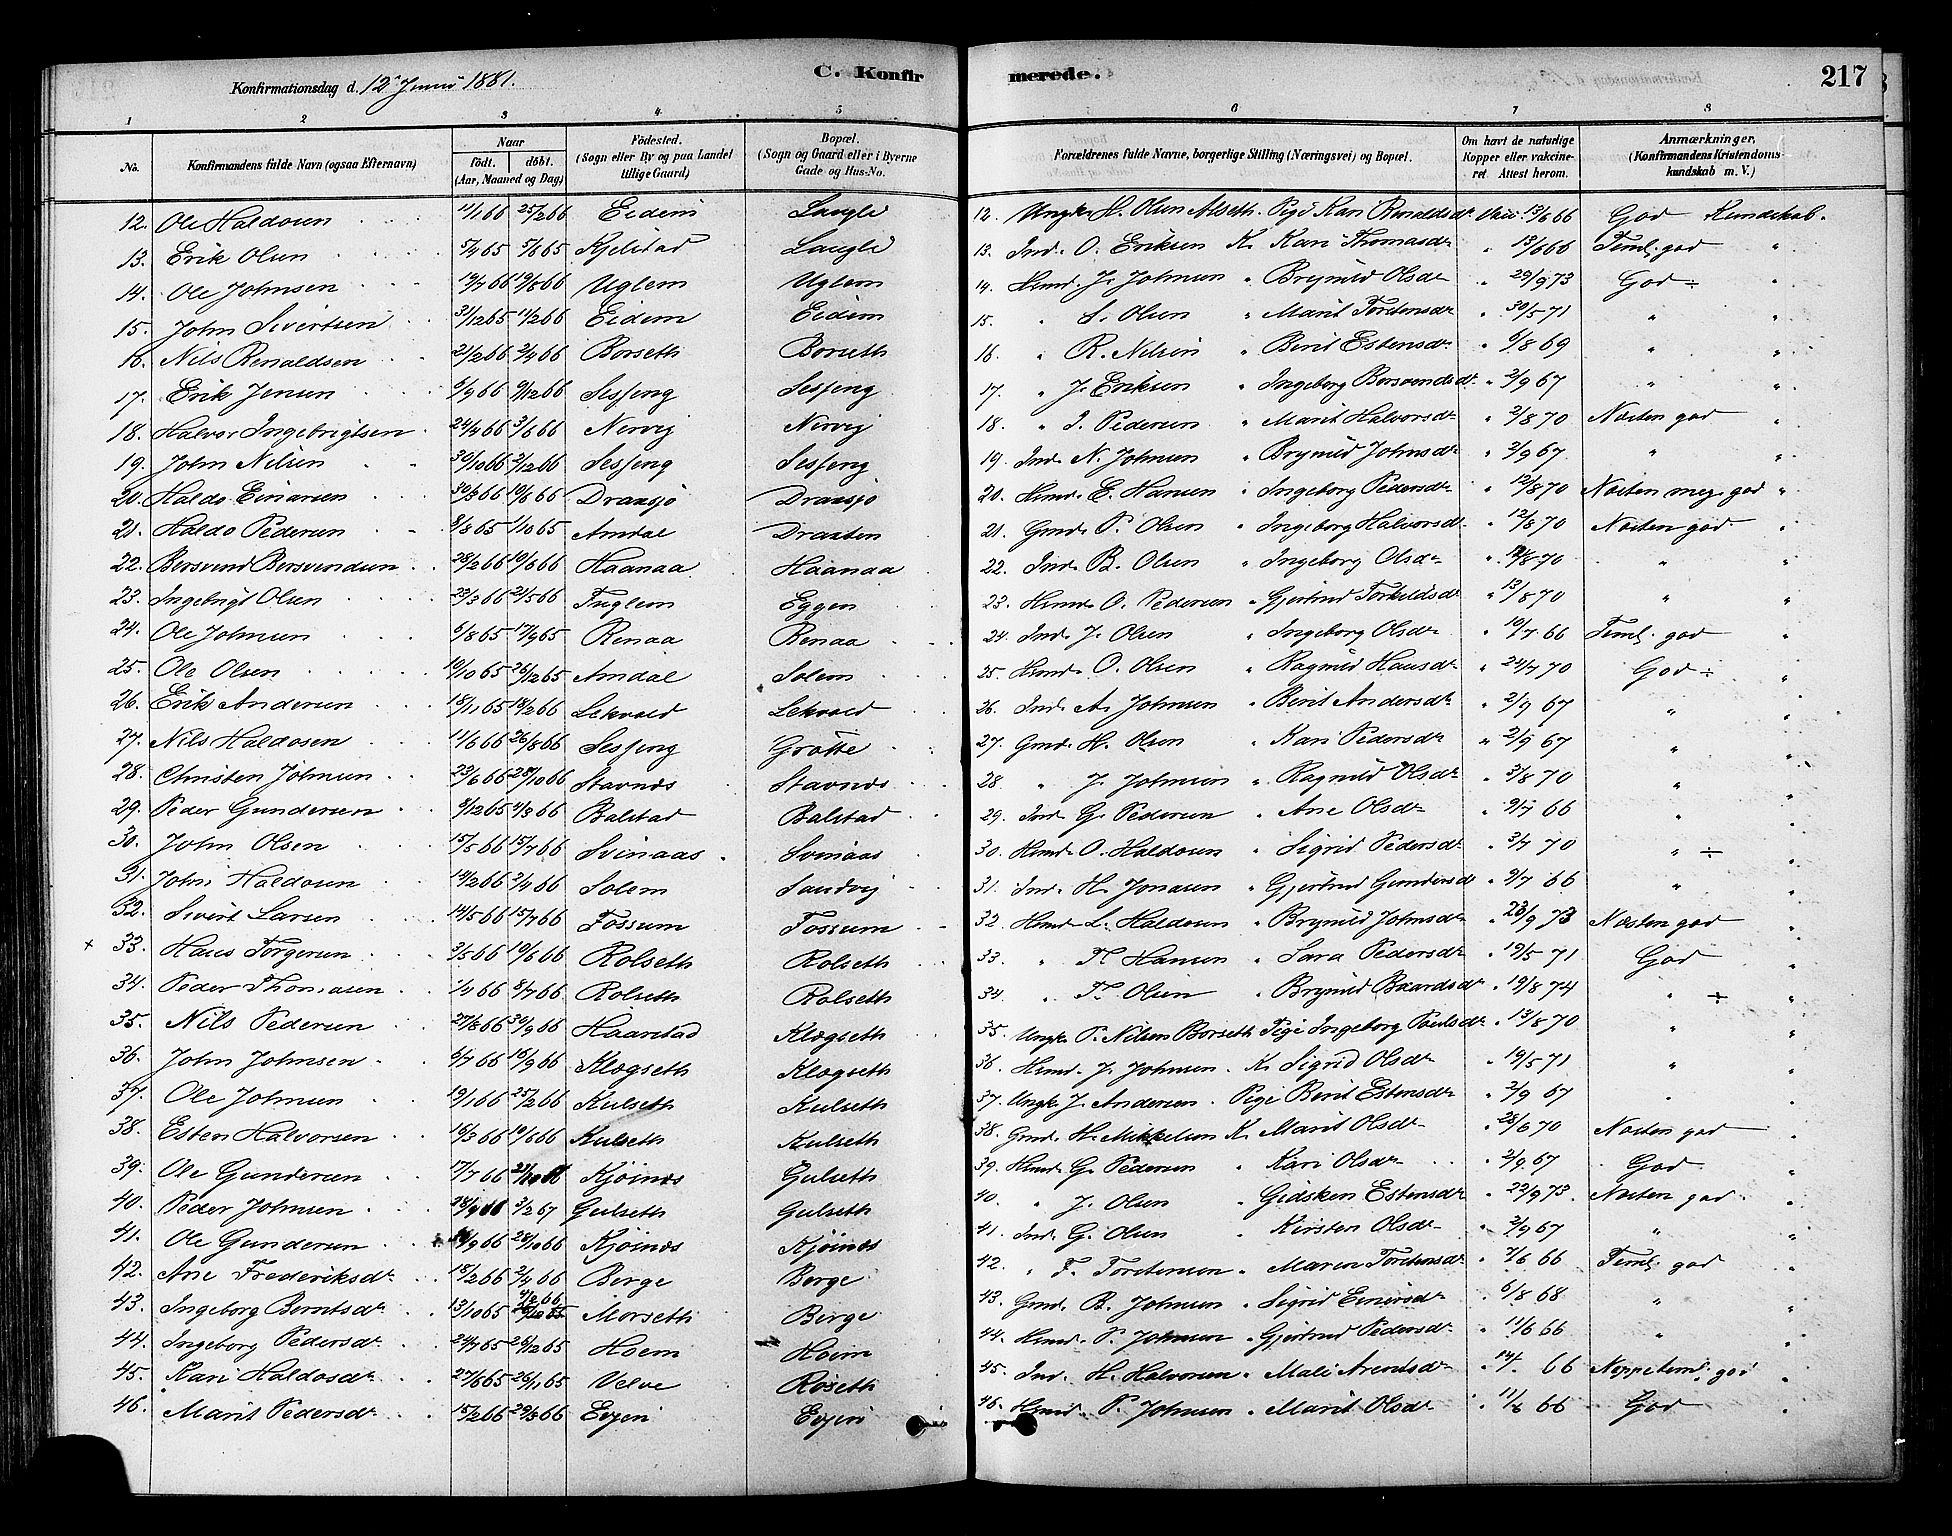 Konfirmationsdag d. 12te Juni 1881. C. Konfirmerede. 217
1 2 3 4 5 6 7 8
No. Konfirmandens fulde Navn (ogsaa Efternavn) Naar født. døbt. (Aar, Maaned og Dag) Fødested. (Sogn eller By og paa Landet tillige Gaard) Bopæl. (Sogn og Gaard eller i Byerne Gade og Hus-No. Forældrenes fulde Navne, borgerlige Stilling (Næringsvei) og Bopæl. Om havt de naturlige Kopper eller vakcineret Attest herom. Anmærkninger, (Konfirmandens Kristendomskundskab m. V.)
12. Ole Haldosen 11/1 66 25/2 66 Eidem Laugli 12. Ungk. H. Olsen Alseth Pige Kari Renaldsdr Vac. 13/6 66 God Kundskab.
13. Erik Olsen 5/4 65 5/6 65 Kjelstad Laugli 13. Ind. O. Eriksen K. Kari Thomasdr " 13/6 66 Teml. god "
14. Ole Johnsen 19/7 66 19/8 66 Uglem Uglem 14. Hmd. J. Johnsen " Brynild Olsdr " 29/9 73 God ÷ "
15. John Sivertsen 31/12 65 11/2 66 Eidem Eidem 15. " S. Olsen " Marit Torstensdr " 30/5 71 " "
16. Nils Renaldsen 21/2 66 2/4 66 Borseth Borseth 16. " R. Nilsen " Berit Estensdr " 6/8 69 " "
17. Erik Jensen 6/9 66 9/12 66 Sesseng Sesseng 17. " J. Eriksen " Ingeborg Bersvendsdr " 2/9 67 " "
18. Halvor Ingebrigtsen 24/4 66 3/6 66 Nervig Nervig 18. " I. Pedersen " Marit Halvorsdr " 2/8 70 Næsten god "
19. John Nilsen 30/10 66 2/12 66 Sesseng Sesseng 19. Ind. N. Johnsen " Brynild Johnsdr " 2/9 67 " "
20. Haldo Einarsen 30/3 66 10/6 66 Draxsjø Draxsjø 20. Hmd. E. Hansen " Ingeborg Pedersdr " 12/8 70 Næsten meg. god "
21. Haldo Pedersen 8/8 65 1/10 65 Amdal Draxten 21. Gmd. P. Olsen " Ingeborg Halvorsdr " 12/8 70 Næsten god "
22. Bersvend Bersvendsen 28/2 66 10/6 66 Haanaa Haanaa 22. Ind. B. Olsen " Ingeborg Olsdr " 12/8 70 " "
23. Ingebrigt Olsen 23/3 66 21/5 66 Fuglem Eggen 23. Hmd. O. Pedersen " Gjertrud Torkildsdr " 13/8 70 " "
24. Ole Johnsen 6/8 65 17/9 65 Renaa Renaa 24. Ind. J. Olsen " Ingeborg Olsdr " 10/7 66 Teml. god "
25. Ole Olsen 19/10 65 26/12 65 Amdal Solem 25. Hmd. O. Olsen " Ragnild Hansdr " 24/7 70 God ÷ "
26. Erik Andersen 18/11 65 18/2 66 Lekvold Lekvold 26. Ind. A. Johnsen " Berit Andersdr " 2/9 67 " "
27. Nils Haldosen 11/6 66 26/8 66 Sesseng Grøtte 27. Gmd. H. Olsen " Kari Pedersdr " 2/9 67 " "
28. Christen Johnsen 23/6 66 28/10 66 Stavnes Stavnes 28 " J. Johnsen " Ragnild Olsdr " 3/8 70 " "
29. Peder Gundersen 9/12 65 4/3 66 Balstad Balstad 29. Ind. G. Pedersen " Ane Olsdr " 9/7 66 " "
30. John Olsen 15/5 66 15/7 66 Svinaas Svinaas 30. Hmd. O. Haldosen " Sigrid Pedersdr " 3/7 70 " ÷ "
31. John Haldosen 14/2 66 2/4 66 Solem Sandvig 31. Ind. H. Jonasen " Gjertrud Gundersdr " 9/7 66 " "
32. Sivert Larsen 14/5 66 15/7 66 Fossum Fossum 32. Hmd. L. Haldosen " Brynild Johnsdr " 23/9 73 Næsten god "
× 33. Hans Torgersen 3/5 66 10/6 66 Rolseth Rolseth 33. " T. Hansen " Sara Pedersdr " 19/5 71 God "
34. Peder Thomasen 1/4 66 8/7 66 Rolseth Rolseth 34. " T. Olsen " Brynild Baardsdr " 19/8 74 " ÷ "
35. Nils Pedersen 27/8 66 30/9 66 Haarstad Klegseth 35. Ungk. P. Nilsen Borseth Pige Ingeborg Paulsdr " 13/8 70 " "
36. John Johnsen 6/7 66 16/9 66 Klegseth Klegseth 36. Hmd. J. Johnsen K. Sigrid Olsdr " 19/5 71 " "
37. Ole Johnsen 19/1 66 25/2 66 Kulseth Kulseth 37. Ungk. J. Andersen Pige Berit Estensdr " 2/9 67 " "
38. Esten Halvorsen 16/3 66 10/6 66 Kulseth Kulseth 38. Gmd. H. Mikkelsen K. Marit Olsdr " 28/6 70 Næsten god "
39. Ole Gundersen 17/7 66 21/10 66 Kjøines Gulseth 39. Hmd. G. Pedersen " Kari Olsdr " 2/9 67 God "
40. Peder Johnsen 28/9 66 3/2 67 Gulseth Gulseth 40. " J. Olsen " Gidsken Estensdr " 22/9 73. Næsten god "
41. Ole Gundersen /9 66 28/10 66 Kjøines Kjøines 41. Ind. G. Olsen " Kirsten Olsdr " 2/9 67 " "
42. Ane Frederiksdr 18/2 66 2/4 66 Berge Berge 42. " F. Torstensen " Maren Torstensdr " 7/6 66 Teml. god "
43. Ingeborg Berntsdr 13/10 65 4/2 66 26/12 65 Morseth Berge 43. Gmd. B. Johnsen " Sigrid Einersdr " 6/8 68 " "
44. Ingeborg Pedersdr 24/7 65 26/12 65 Hoem Hoem 44. Hmd. P. Johnsen " Gjertrud Pedersdr " 11/6 66 " "
45. Kari Haldosdr 27/6 65 26/11 65 Velve Røseth 45. Ind. H. Halvorsen " Mali Arentsdr " 14/ 66 Neppe teml. god "
46. Marit Pedersdr 15/2 66 29/3 66 Evjen Evjen 46. Hmd. P. Johnsen " Marit Olsdr " 11/6 66 God "